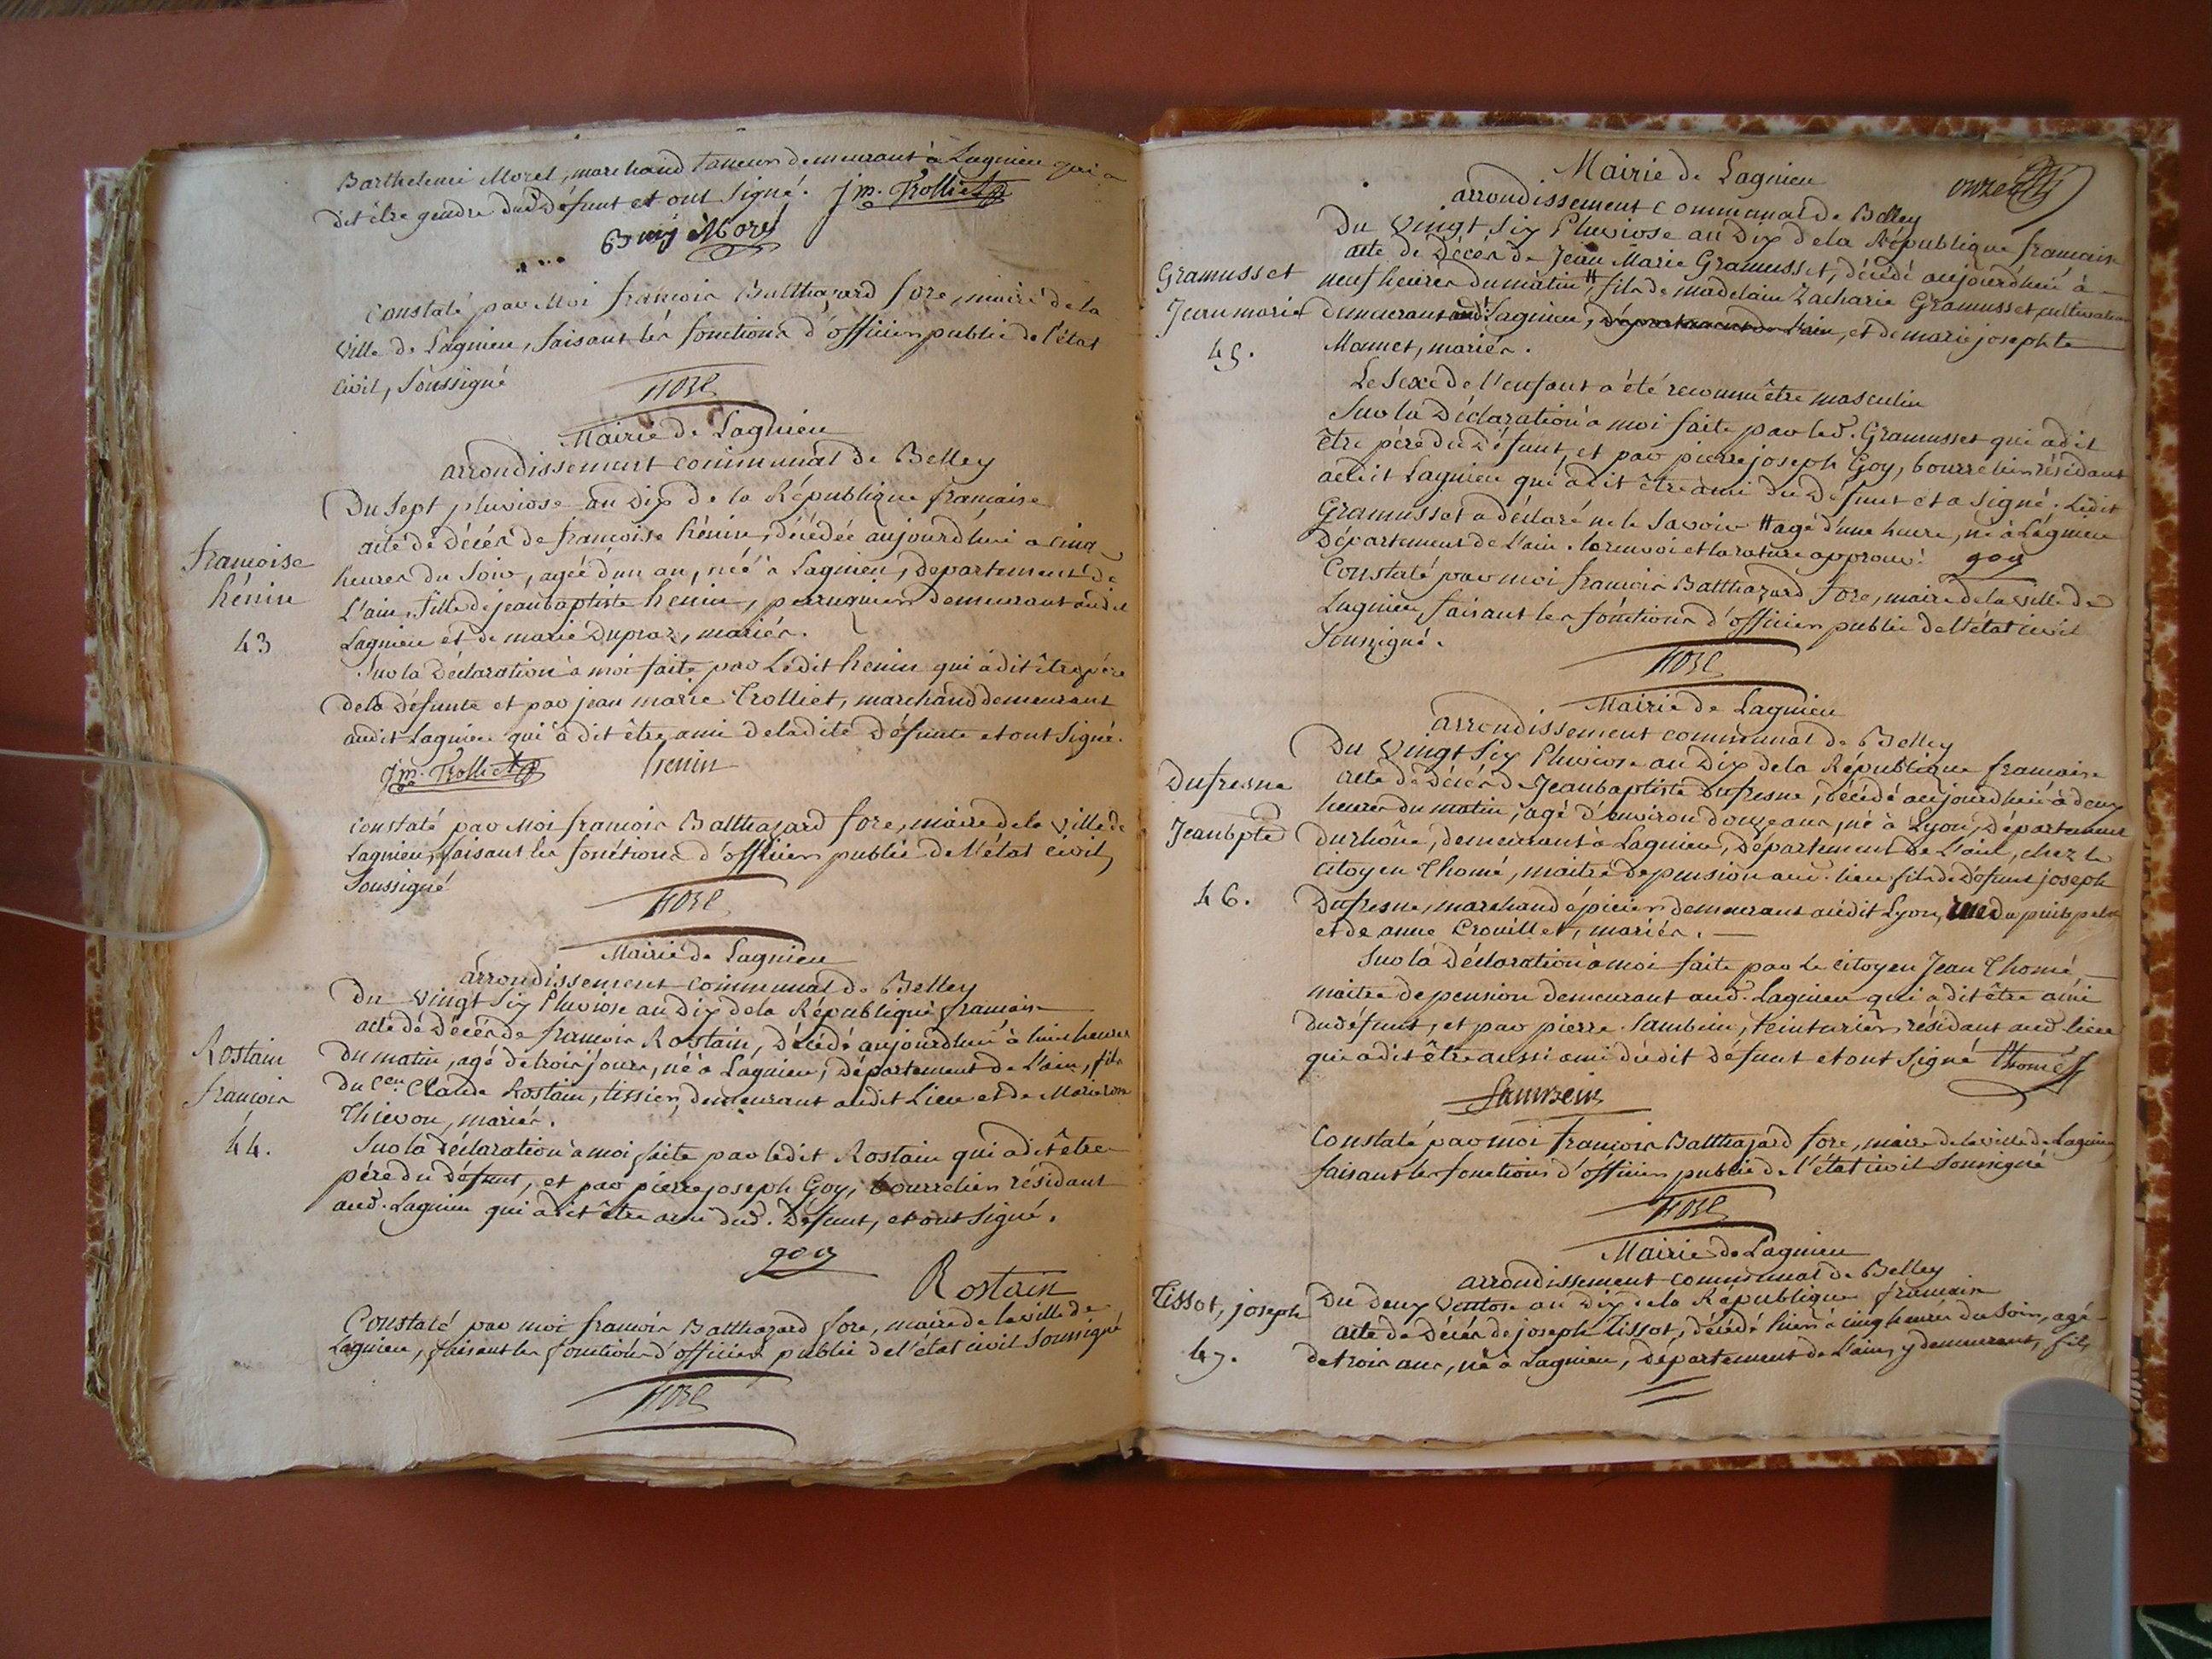 Barthelemi Morel, marchand taneur demeurant à Lagnieu qui a
dit être gendre dud. Défunt et ont signé. Jm. Trolliet
Bmy Morel
Constaté par Moi francois Balthazard fore, maire de la
ville de Lagnieu, faisant les fonctions d'officier public de l'état
civil, soussigné
fore
Mairie de Lagnieu
arrondissement communal de Belley
Du sept pluviose an Dix de la République francaise
francoise
hénin
43
acte de décès de francoise hénin, décédée aujourd'hui a cinq
heures du soir, agée d'un an, née à Lagnieu, departement de
L'ain, fille de jean baptiste henin, perruquier demeurant audit
Lagnieu et de marie Dupraz, mariés.
Sur la déclaration à moi faite par Ledit henin qui a dit être père
de la défunte et par jean marie Trolliet, marchand demeurant
audit Lagnieu qui a dit être ami de ladite défunte et ont signé.
Jm. Trolliet henin
Constaté par Moi francois Balthazard fore, maire de la ville de
Lagnieu, faisant les fonctions d'officier public de l'état civil
Soussigné
fore
Mairie de Lagnieu
arrondissement communal de Belley
Du vingt Six Pluviose an Dix de la République francaise
Rostain
francois
44.
acte de décès de francois Rostain, décédé aujourd'hui à huit heures
du matin, agé de trois jours, né à Lagnieu, département de L'ain, fils
du Cen Claude Rostain, tissier, demeurant audit Lieu et de Marie rose
Thievon, mariés.
Sur la déclaration à moi faite par ledit Rostain qui a dit être
père du défunt, et par pierre joseph Goy, bourrelier résidant
aud. Lagnieu qui a dit être ami dud. Défunt, et ont signé.
goy
Rostain
Constaté par moi francois Balthazard fore, maire de la ville de
Lagnieu, faisant les fonctions d'officier public de l'état civil soussigné
fore
Mairie de Lagnieu
arrondissement communal de Belley
Du vingt Six Pluviose an Dix de la République francaise
Gramusset
Jean marie
45.
acte de Décès de Jean Marie Gramusset, décédé aujourd'hui à
neuf heures du matin # fils de madelain Zacharie Gramusset, cultivateur
demeurant aud. Lagnieu, département de L'ain, et de marie josephte
Mamet, mariés.
Le Sexe de l'enfant a été reconnu être masculin
Sur la Déclaration à moi faite par led. Gramusset qui a dit
être père du défunt, et par pierre joseph Goy, bourrelier résidant
audit Lagnieu qui a dit être ami du Défunt et a signé. Ledit
Gramusset a déclaré ne le savoir # agé d'une heure, né à Lagnieu
Département de L'ain. le renvoi et la rature approuvé. goy
Constaté par moi francois Balthazard fore, maire de la ville de
Lagnieu, faisant les fonctions d'officier public de l'état civil
Soussigné.
fore
Mairie de Lagnieu
arrondissement communal de Belley
Du Vingt Six Pluviose an Dix de la République francaise
Dufresne
Jean bpte
46.
acte de Décès de Jean baptiste Dufresne, décédé aujourd'hui à deux
heures du matin, agé d'environ douze ans, né à Lyon, Département
du rhône, demeurant à Lagnieu, Département de L'ain, chez le
Citoyen Thomé, maitre de pension aud. lieu fils de défunt joseph
Dufresne, marchand épicier demeurant audit Lyon, rue du puits pelu
et de anne Crouillet, mariés.
Sur la déclaration à moi faite par le citoyen Jean Thomé
maitre de pension demeurant aud. Lagnieu qui a dit être ami
du défunt, et par pierre Sambein, teinturier, résidant aud. lieu
qui a dit être aussi ami dudit défunt et ont signé Thomé
Sambein
Constaté par moi francois Balthazard fore, maire de la ville de Lagnieu,
faisant les fonctions d'officier public de l'état civil soussigné
fore
Mairie de Lagnieu
arrondissement communal de Belley
Tissot, joseph
47.
Du deux Ventose an Dix de la République francaise
acte de Décès de joseph Tissot, décédé hier à cinq heures du soir, agé
de trois ans, né à Lagnieu, Département de L'ain, y demeurant, fils